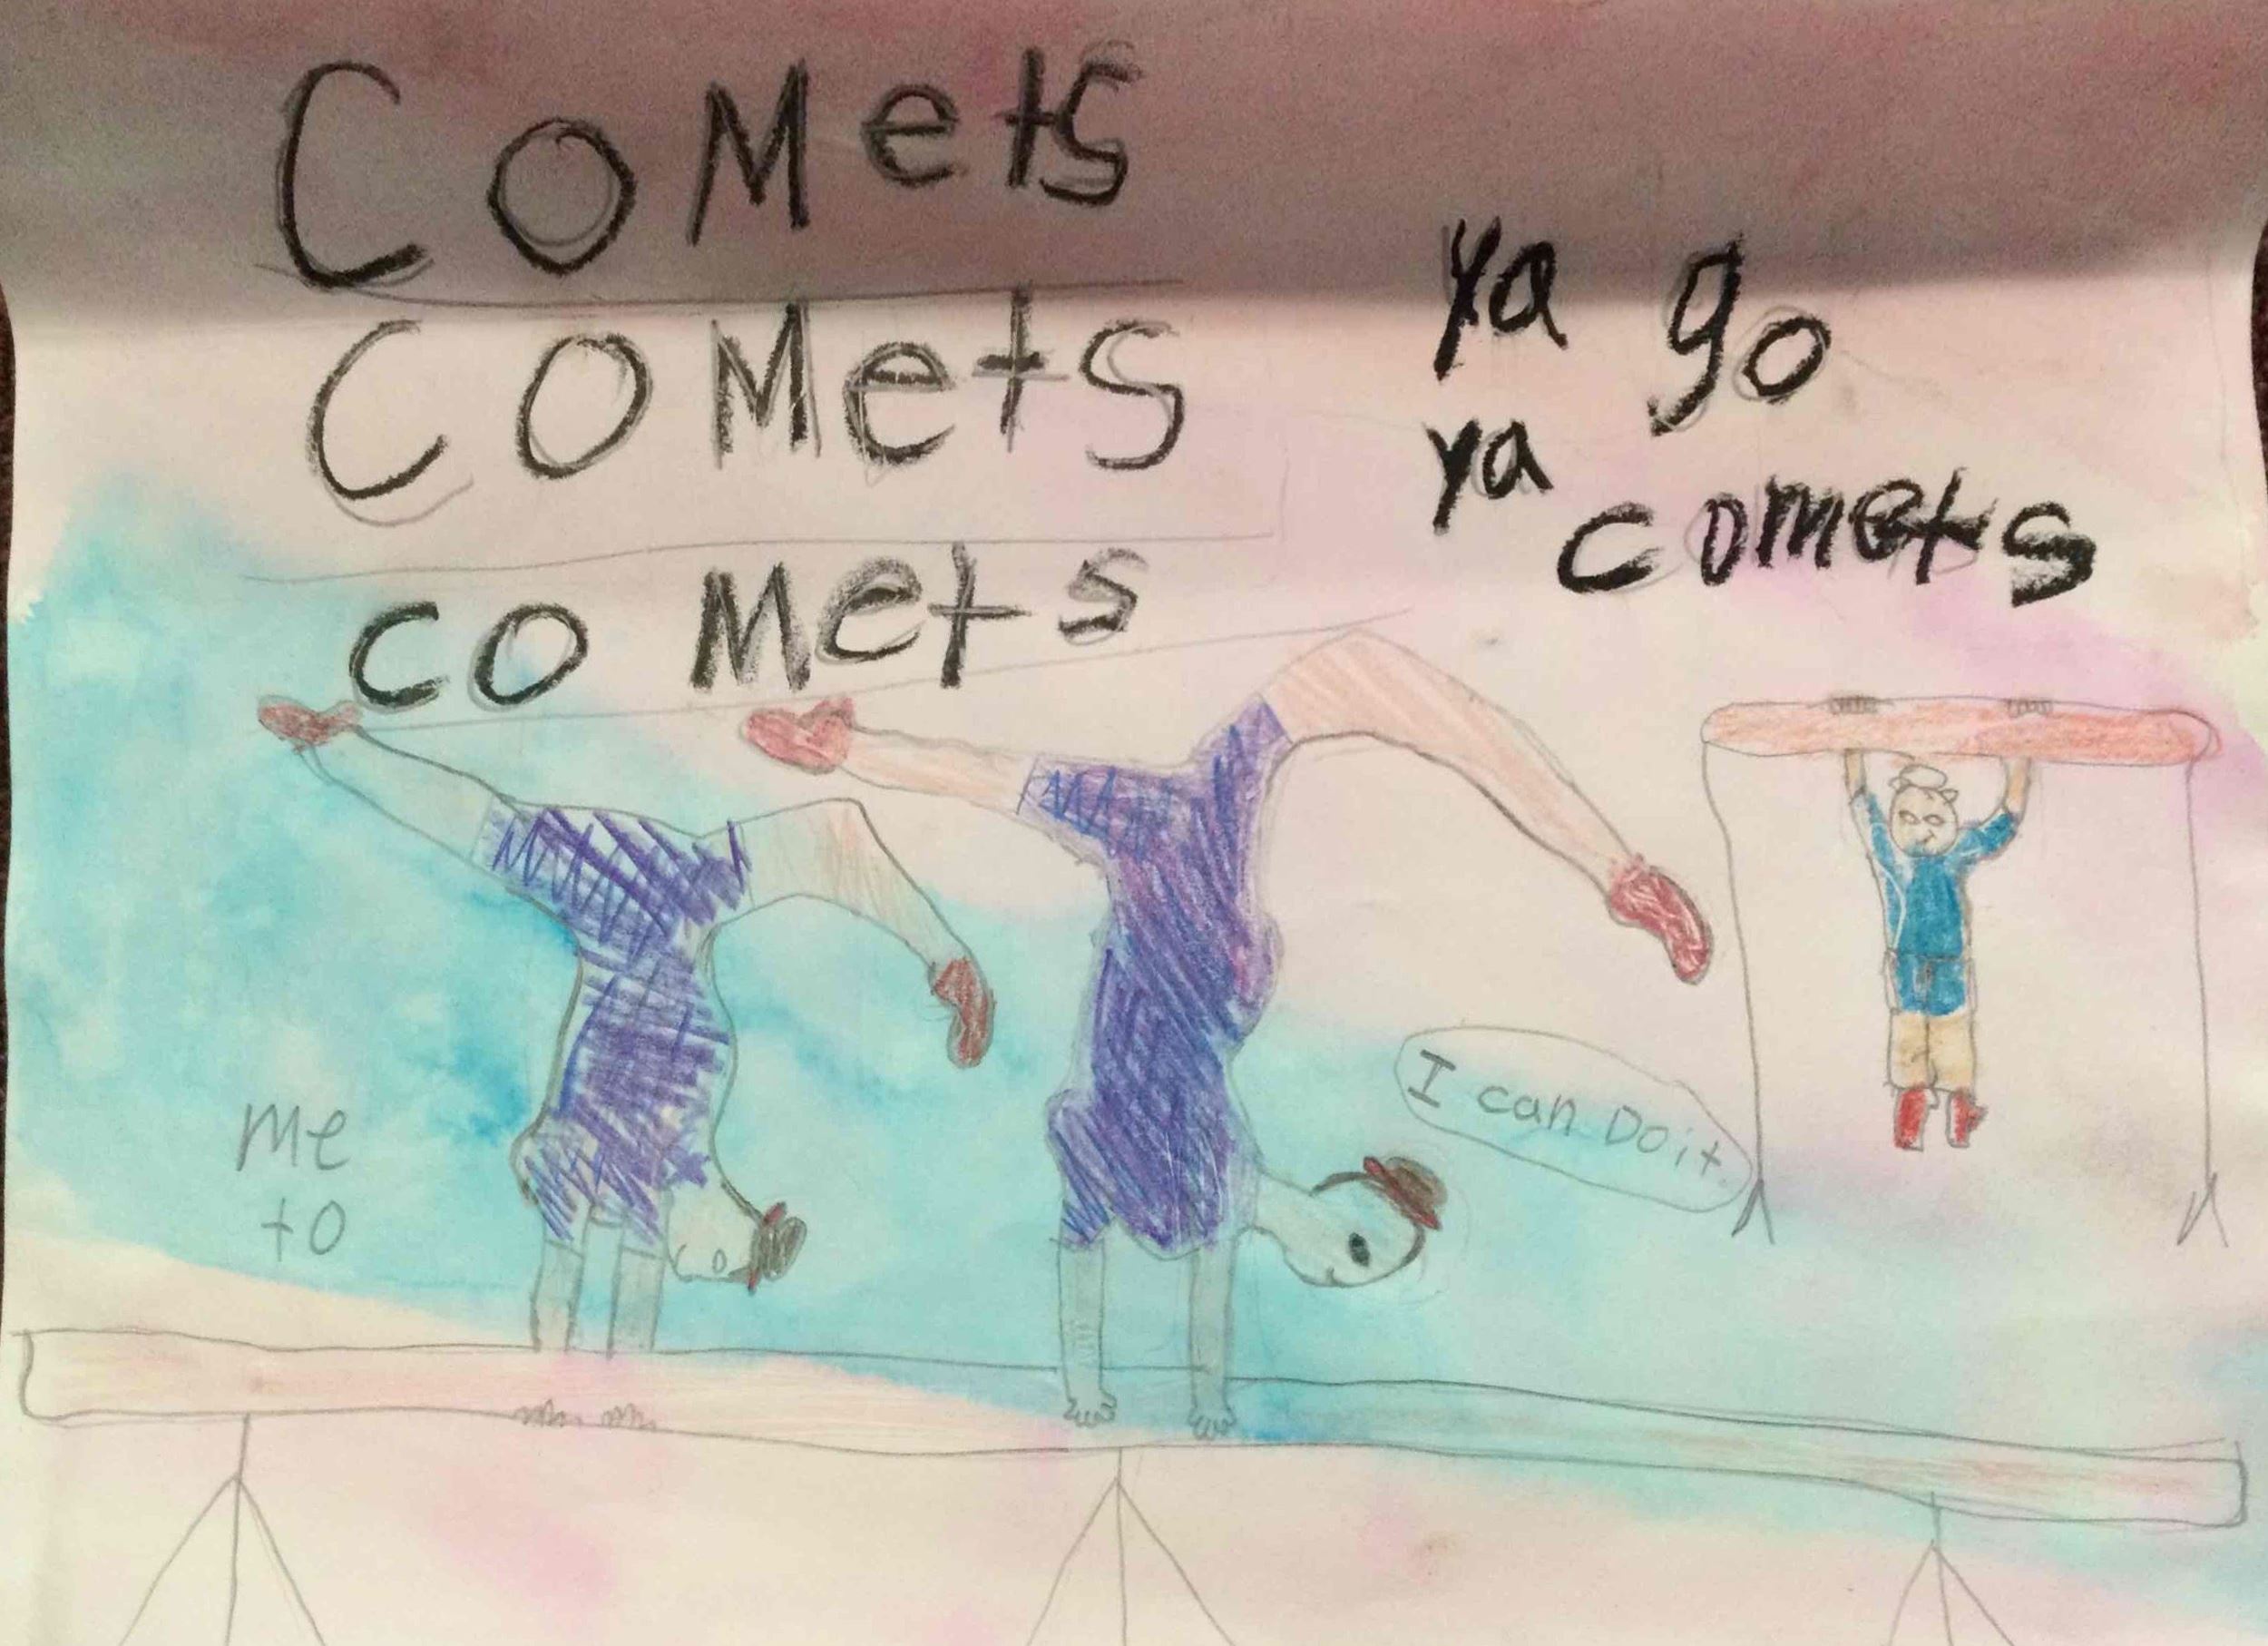 CoMets
CoMets
coMets
ya go
ya comets
I can Do it.
Me
to